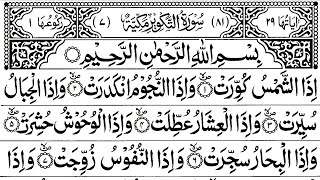 اٰيَاتُهَا ٢٩ (٨١) سُوْرَةُ التَّكْوِيْرِ مَكِّيَّةٌ (٧) رُكُوْعُهَا ١
بِسْمِ اللّٰهِ الرَّحْمٰنِ الرَّحِيْمِ
اِذَا الشَّمْسُ كُوِّرَتْ ۙ۝١ وَاِذَا النُّجُوْمُ انْكَدَرَتْ ۙ۝٢ وَاِذَا الْجِبَالُ
سُيِّرَتْ ۙ۝٣ وَاِذَا الْعِشَارُ عُطِّلَتْ ۙ۝٤ وَاِذَا الْوُحُوْشُ حُشِرَتْ ۙ۝٥
وَاِذَا الْبِحَارُ سُجِّرَتْ ۙ۝٦ وَاِذَا النُّفُوْسُ زُوِّجَتْ ۙ۝٧ وَاِذَا